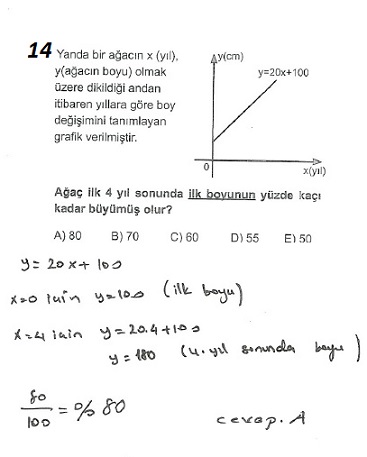 14 Yanda bir ağacın x (yıl),
y(ağacın boyu) olmak
üzere dikildiği andan
itibaren yıllara göre boy
değişimini tanımlayan
grafik verilmiştir.
y(cm)
y=20x+100
0
x(yıl)
Ağaç ilk 4 yıl sonunda ilk boyunun yüzde kaçı
kadar büyümüş olur?
A) 80 B) 70 C) 60 D) 55 E) 50
y = 20x + 100
x=0 için y=100 (ilk boyu)
x=4 için y=20.4+100
y=180 (4. yıl sonunda boyu)
80
100 = %80
cevap. A